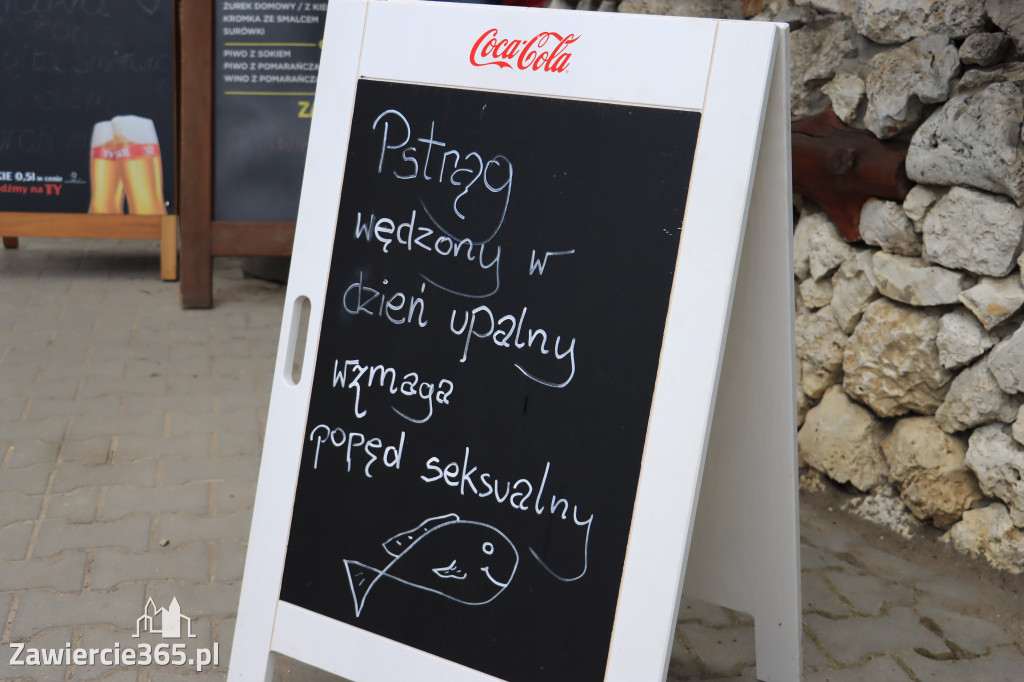 ŻUREK DOMOWY / Z KIE
KROMKA ZE SMALCEM
SURÓWKI
PIWO Z SOKIEM
PIWO Z POMARAŃCZĄ
WINO Z POMARAŃCZĄ
KIE 0,5l w cenie 9
dźmy na TY
Coca-Cola
Pstrąg
wędzony w
dzień upalny
wzmaga
popęd seksualny
Zawiercie365.pl